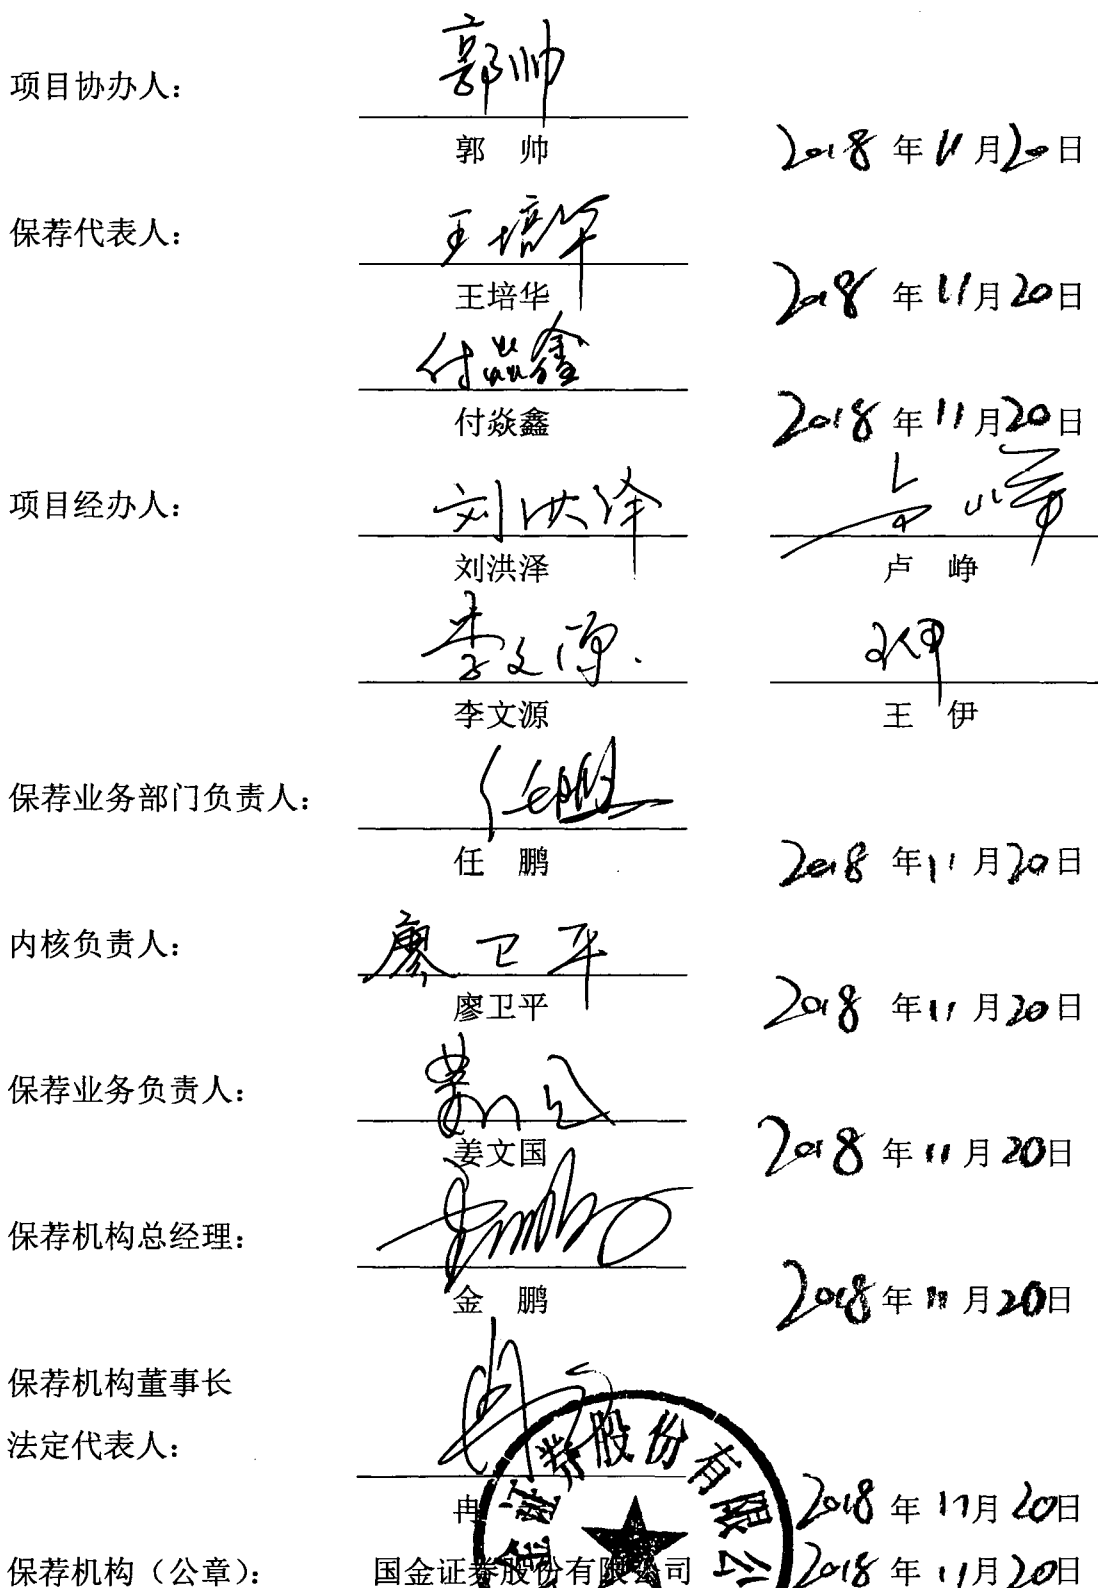 郭帅
项目协办人：
郭 帅
2018 年 11 月 20 日
王培华
保荐代表人：
王培华
2018 年 11 月 20 日
付焱鑫
付焱鑫
2018 年 11 月 20 日
项目经办人： 刘洪泽 卢峥
刘洪泽 卢 峥
李文源 王伊
李文源 王 伊
任鹏
保荐业务部门负责人：
任 鹏
2018 年 11 月 20 日
廖卫平
内核负责人：
廖卫平
2018 年 11 月 20 日
保荐业务负责人：
姜文国
2018 年 11 月 20 日
保荐机构总经理：
金 鹏
2018 年 11 月 20 日
保荐机构董事长
法定代表人：
冉
2018 年 11 月 20 日
保荐机构（公章）： 国金证券股份有限公司 2018 年 11 月 20 日
金证券股份有限公